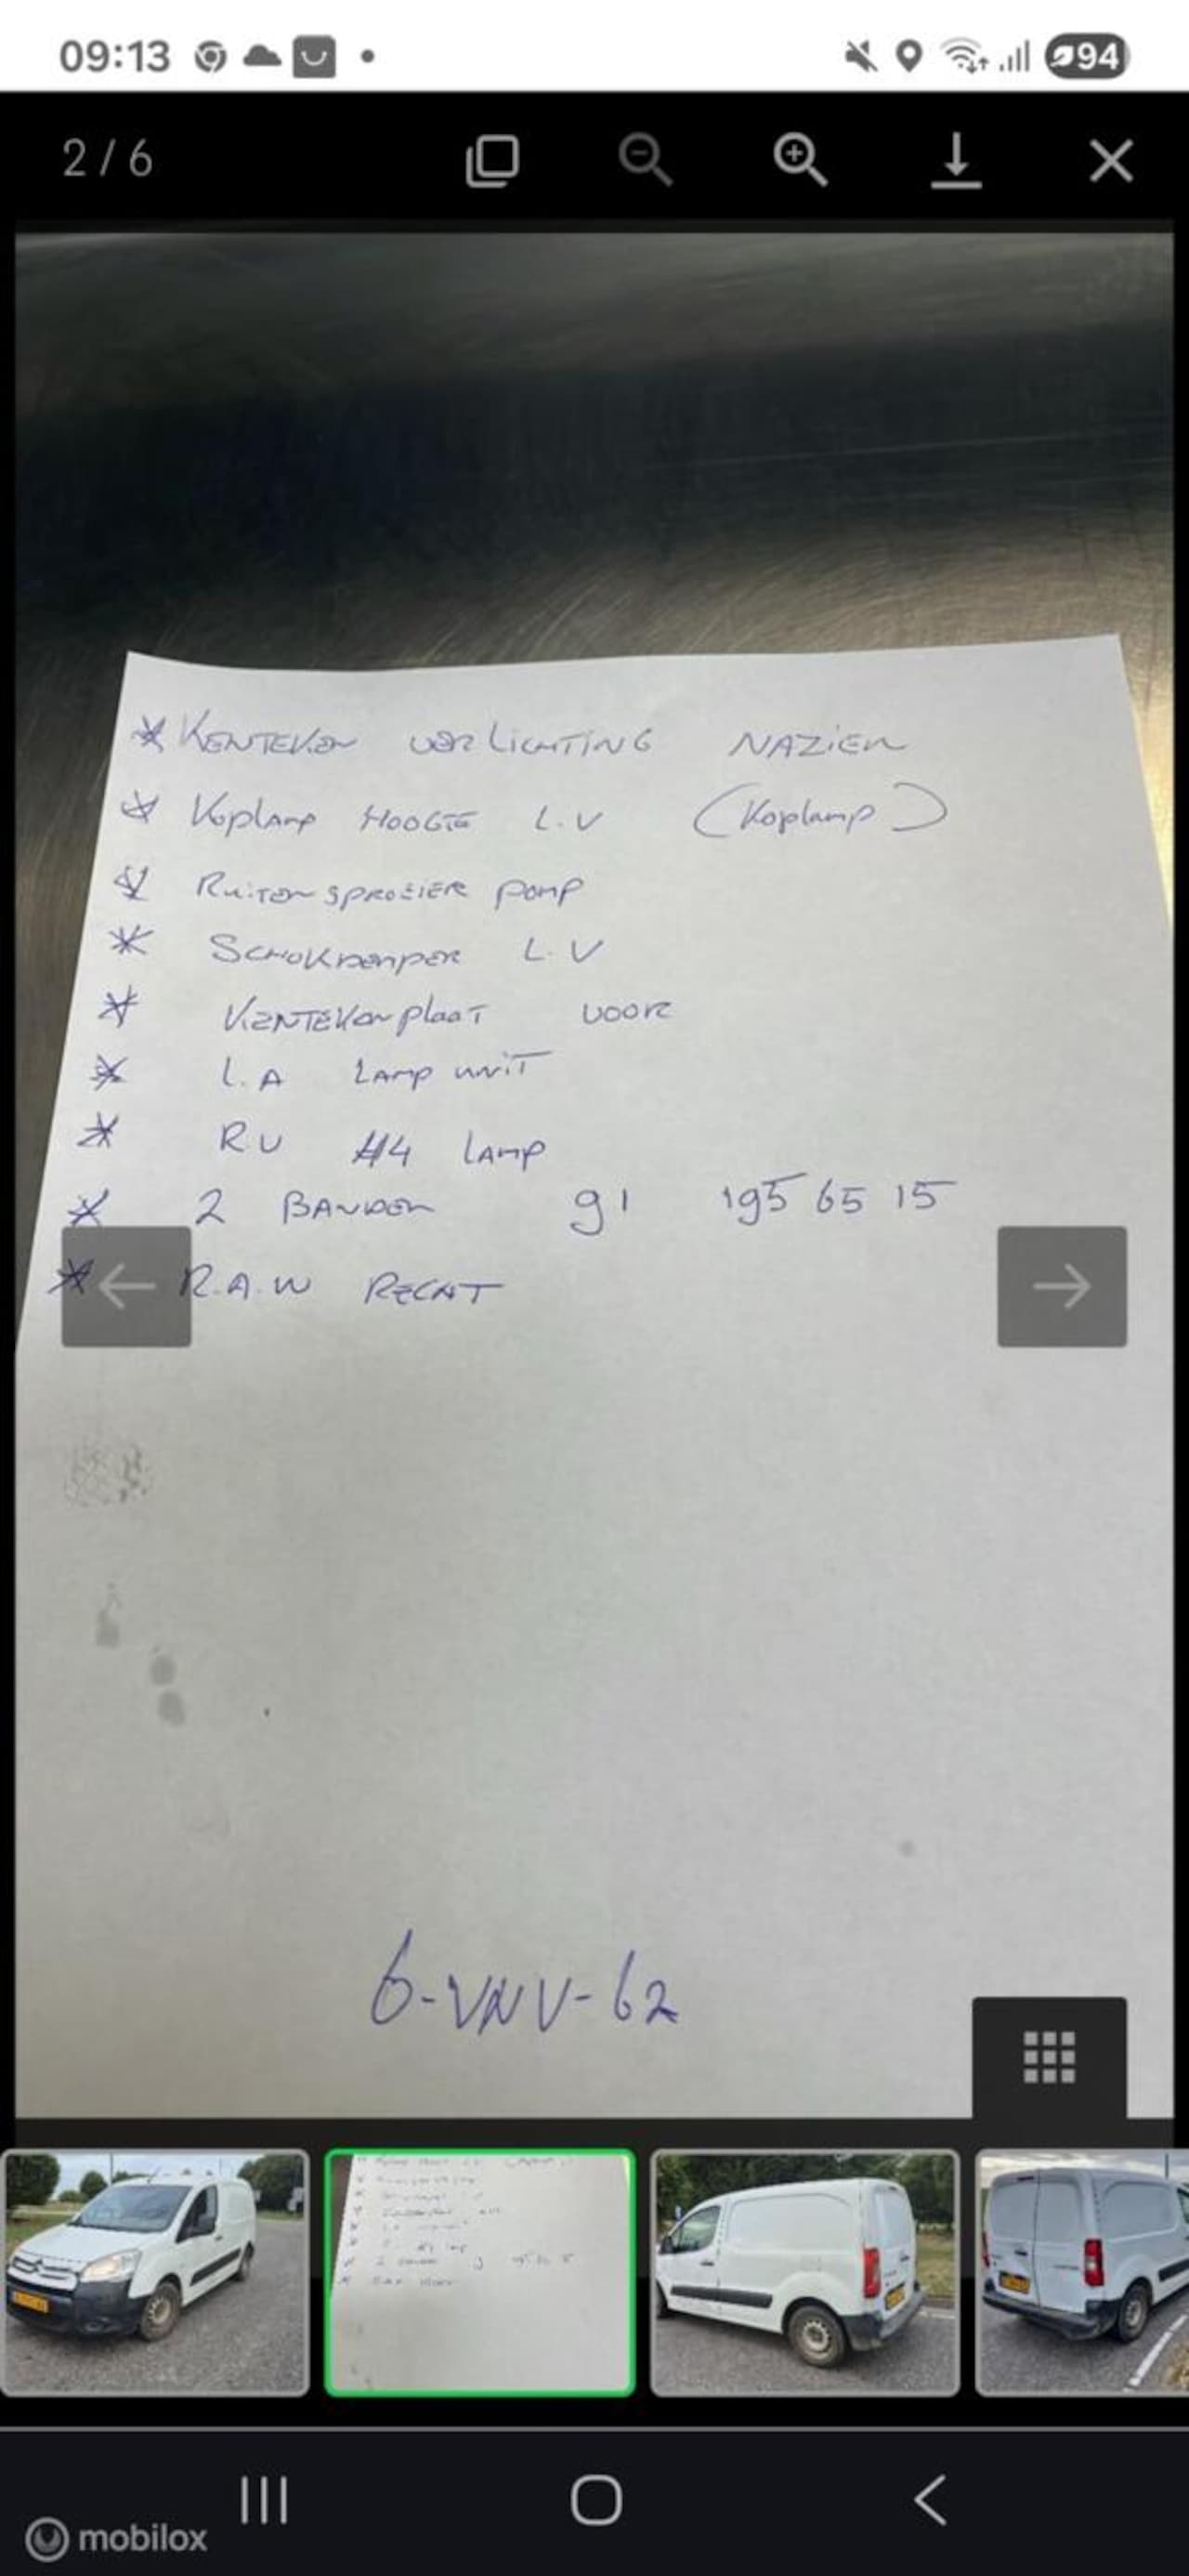 09:13
94
2 / 6
* KENTEKEN VERLICHTING NAZIEN
* Koplamp HOOGTE L.V (Koplamp)
* RuiTEN SPROEIER pomp
* SCHOKDEMPER L.V
* KENTEKEN plaaT VOOR
* L.A LAMP UNIT
* R.V H4 LAMP
* 2 BANDEN 91 195 65 15
* R.A.W RECHT
6-VNV-62
mobilox